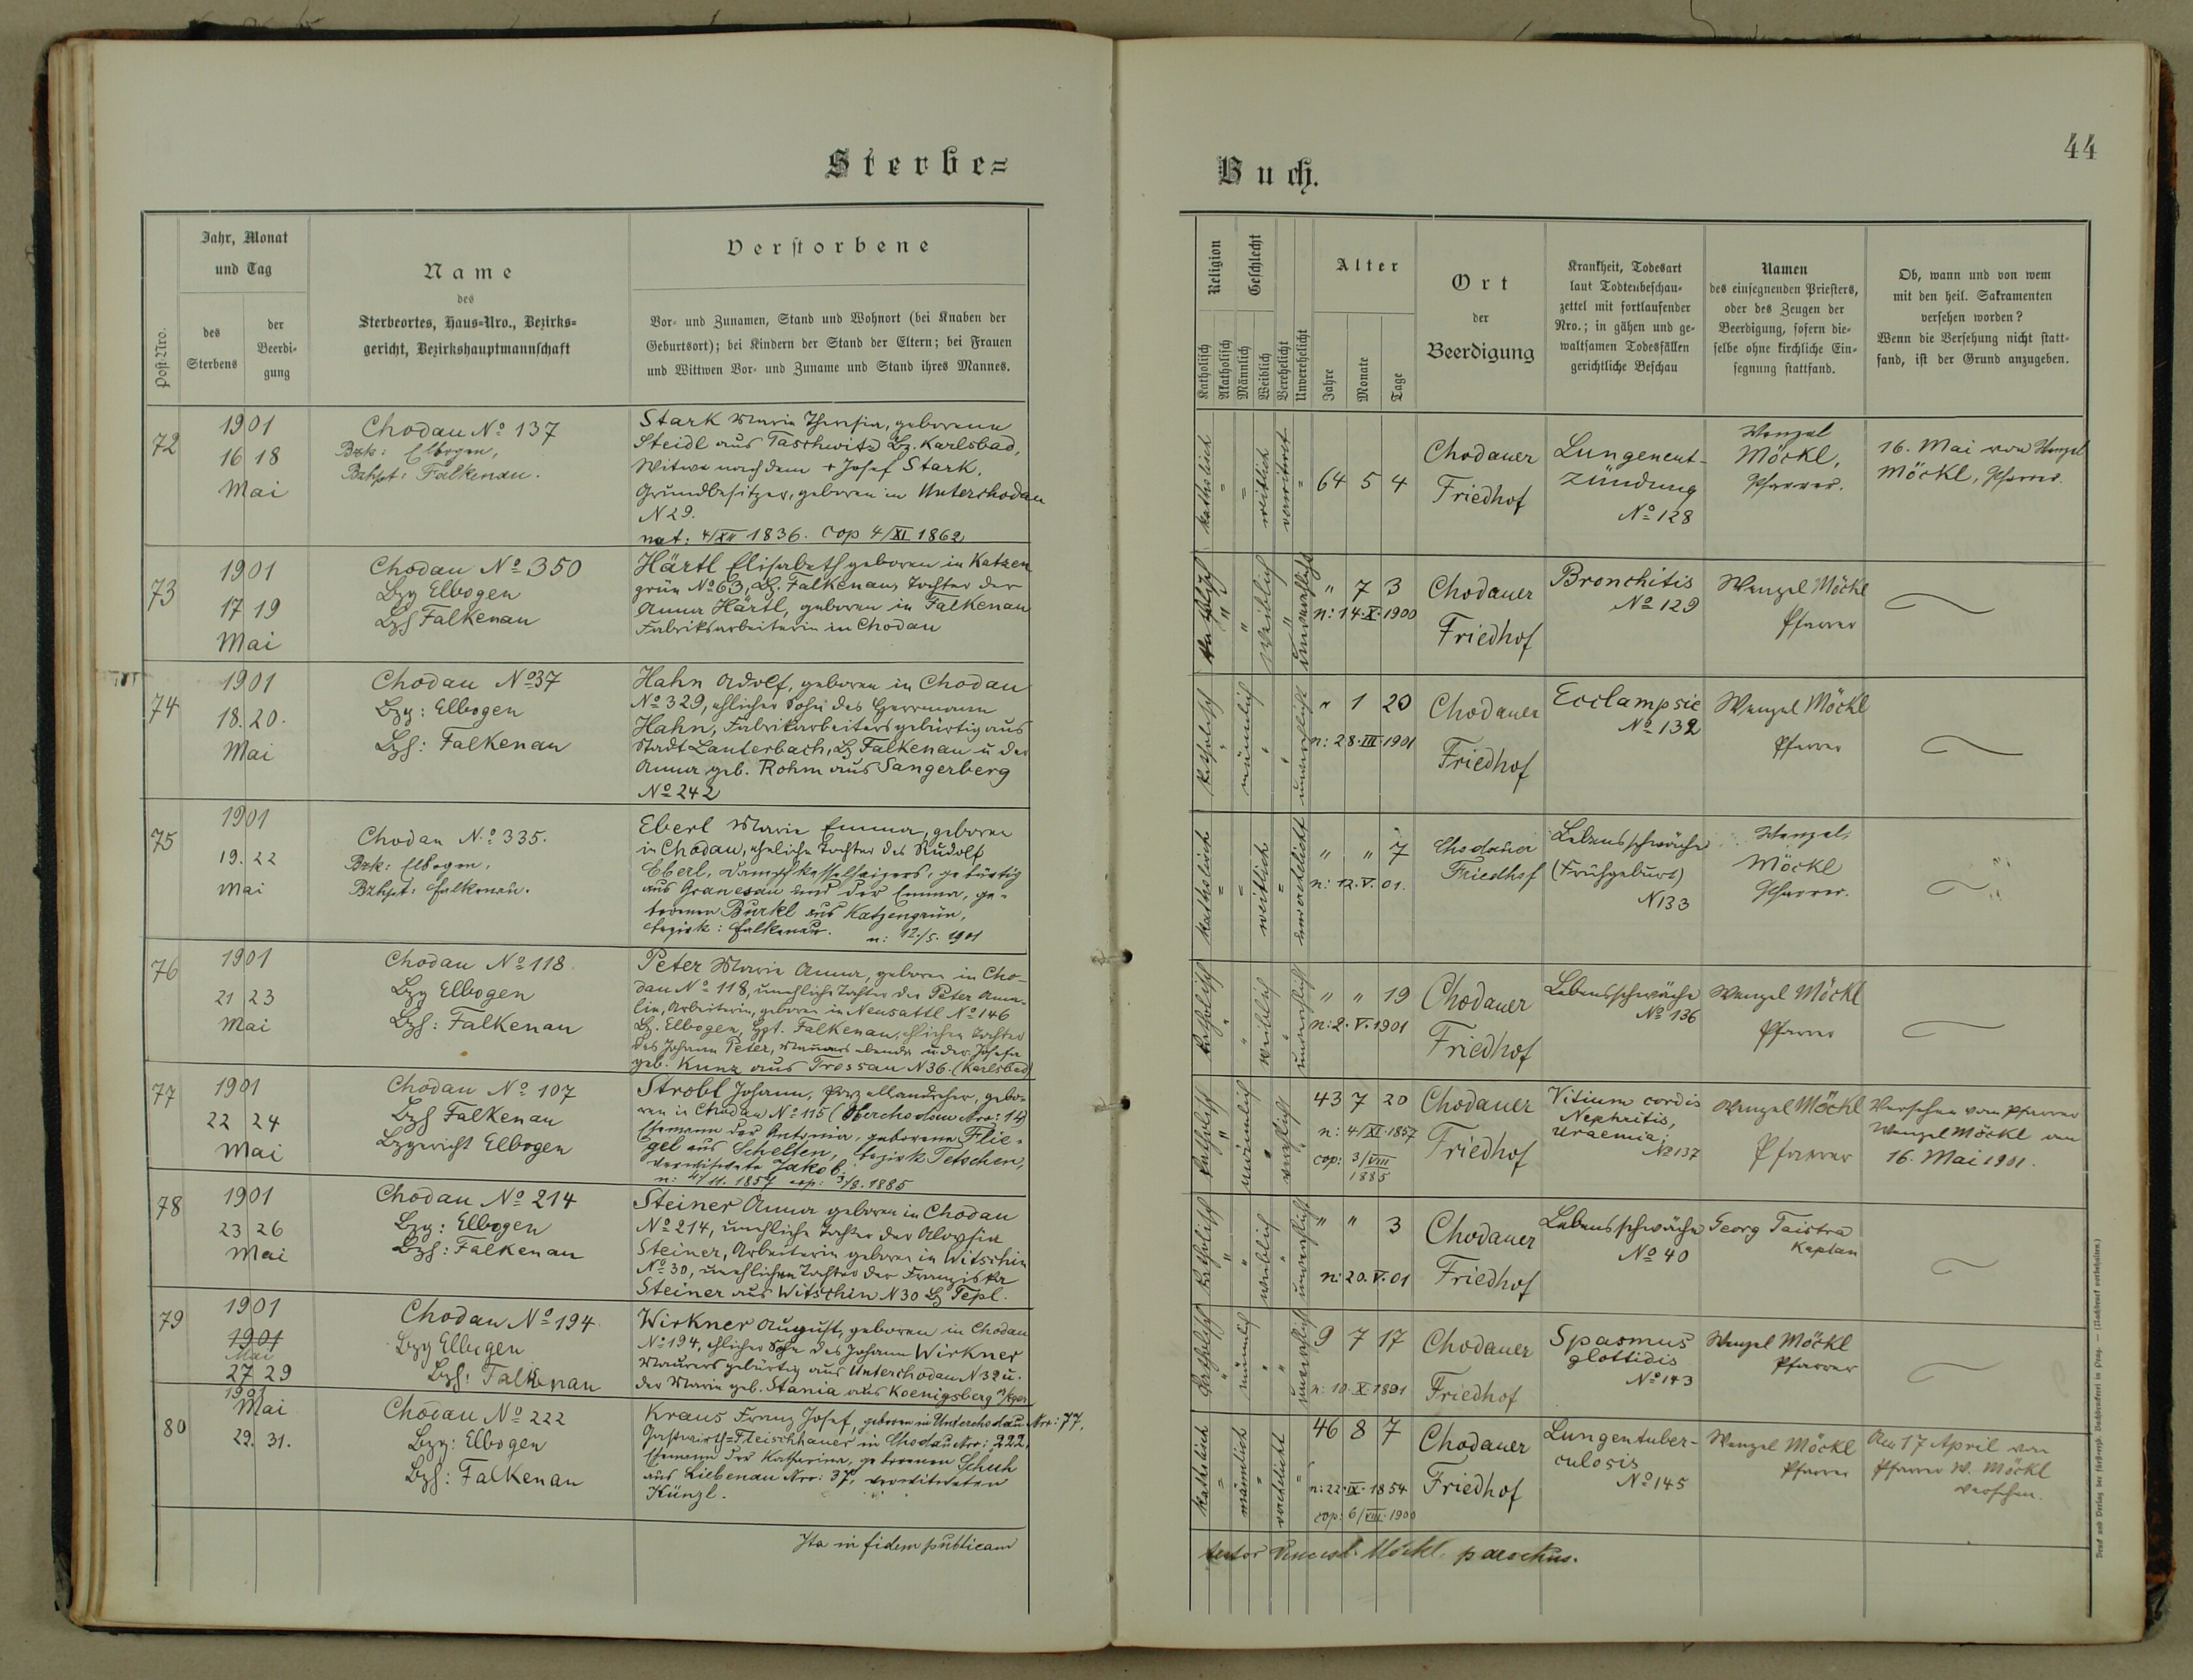 Sterbe=
Jahr, Monat
und Tag
Post-Nro.
des
Sterbens
der
Beerdi-
gung
Name
des
Sterbeortes, Haus=Nro., Bezirks=
gericht, Bezirkshauptmannschaft
Verstorbene
Vor= und Zunamen, Stand und Wohnort (bei Knaben der
Geburtsort); bei Kindern der Stand der Eltern; bei Frauen
und Wittwen Vor= und Zuname und Stand ihres Mannes.
72
1901
16 18
Mai
Chodau No 137
Bzk: Elbogen,
Bzhpt: Falkenau.
Stark Maria Theresia, geborene
Steidl aus Taschwitz Bz. Karlsbad,
Witwe nach dem + Josef Stark,
Grundbesitzer, geboren in Unterchodau
N 29.
nat: 4/XII 1836. cop 4/XI 1862
73
1901
17 19
Mai
Chodau No 350
Bzg Elbogen
Bzh Falkenau
Härtl Elisabeth geboren in Katzen
grün No 63, Bz. Falkenau, Tochter der
Anna Härtl, geboren in Falkenau
Fabriksarbeiterin in Chodau
74
1901
18. 20.
Mai
Chodau No 37
Bzg: Elbogen
Bzh: Falkenau
Hahn Adolf, geboren in Chodau
No 329, ehlicher Sohn des Herrmann
Hahn, Fabrikarbeiters gebürtig aus
Stadt Lauterbach, Bz Falkenau u der
Anna geb. Rohm aus Sangerberg
No 242
75
1901
19. 22
Mai
Chodau No 335.
Bzk: Elbogen,
Bzhpt: Falkenau.
Eberl Marie Emma, geboren
in Chodau, eheliche Tochter des Rudolf
Eberl, Dampfkesselheizers, gebürtig
aus Granesau und der Emma, ge-
borenen Burkl aus Katzengrün,
Bezirk: Falkenau. n: 12./5. 1901
76
1901
21 23
Mai
Chodau No 118
Bzg Elbogen
Bzh: Falkenau
Peter Marie Anna, geboren in Cho-
dau No 118, unehliche Tochter der Peter Ama-
lia, Arbeiterin, geboren in Neusattl No 146
Bz. Elbogen, Hpt. Falkenau, ehlichen Tochter
des Johann Peter, Maurers ebenda u der Josefa
geb. Kunz aus Trossau N 36. (Karlsbad)
77
1901
22 24
Mai
Chodau No 107
Bzh Falkenau
Bzgericht Elbogen
Strobl Johann, Porzellandreher, gebo-
ren in Chodau No 115 (Oberchodau Nro: 14)
Ehemann der Antonia, geborene Flie-
gel aus Schelten, Bezirk Tetschen,
verwitwete Jakob.
n: 4/11. 1857 cop: 3/8. 1885
78
1901
23 26
Mai
Chodau No 214
Bzg: Elbogen
Bzh: Falkenau
Steiner Anna geboren in Chodau
No 214, unehliche Tochter der Aloysia
Steiner, Arbeiterin geboren in Witschin
No 30, unehlichen Tochter der Franziska
Steiner aus Witschin N 30 Bz Tepl.
79
1901
1901
Mai
27 29
Chodau No 194
Bzg Elbogen
Bzh: Falkenau
Wirkner August, geboren in Chodau
No 194, ehlicher Sohn des Johann Wirkner
Maurers gebürtig aus Unterchodau N 32 u.
der Marie geb. Stania aus Koenigsberg a/Eger
80
1901
Mai
29. 31.
Chodau No 222
Bzg: Elbogen
Bzh: Falkenau
Kraus Franz Josef, geboren in Unterchodau Nro: 77,
Gastwirth=Fleischhauer in Chodau Nro: 222,
Ehemann der Katharina, geborenen Schuh
aus Liebenau Nro: 37, verwitweten
Künzl.
Ita in fidem publicam
Buch.
44
Religion
Geschlecht
Katholisch
Akatholisch
Männlich
Weiblich
Verehelicht
Unverehelicht
Alter
Jahre
Monate
Tage
Ort
der
Beerdigung
Krankheit, Todesart
laut Todtenbeschau=
zettel mit fortlaufender
Nro.; in gähen und ge=
waltsamen Todesfällen
gerichtliche Beschau
Namen
des einsegnenden Priesters,
oder des Zeugen der
Beerdigung, sofern die=
selbe ohne kirchliche Ein=
segnung stattfand.
Ob, wann und von wem
mit den heil. Sakramenten
versehen worden?
Wenn die Versehung nicht statt=
fand, ist der Grund anzugeben.
katholisch
"
weiblich
verwitwet
64 5 4
Chodauer
Friedhof
Lungenent-
zündung
No 128
Wenzel
Möckl,
Pfarrer.
16. Mai von Wenzel
Möckl, Pfarrer.
katholisch
"
weiblich
"
unverehlicht
" 7 3
n: 14. X. 1900
Chodauer
Friedhof
Bronchitis
No 129
Wenzel Möckl
Pfarrer
katholisch
männlich
"
unverehlicht
" 1 20
n: 28. III. 1901
Chodauer
Friedhof
Ecclampsie
No 132
Wenzel Möckl
Pfarrer
katholisch
"
weiblich
"
unverehelicht
" " 7
n: 12. V. 01.
Chodauer
Friedhof
Lebensschwäche
(Frühgeburt)
N 133
Wenzel
Möckl
Pfarrer.
katholisch
"
weiblich
"
unverehlicht
" " 19
n: 2. V. 1901
Chodauer
Friedhof
Lebensschwäche
No 136
Wenzel Möckl
Pfarrer
katholisch
"
männlich
"
verehlicht
43 7 20
n: 4/XI. 1857
cop: 3/VIII
1885
Chodauer
Friedhof
Vitium cordis
Nephritis,
Uraemia;
No 137
Wenzel Möckl
Pfarrer
Versehen vom Pfarrer
Wenzel Möckl am
16. Mai 1901.
katholisch
"
weiblich
"
unverehlicht
" " 3
n: 20. V. 01
Chodauer
Friedhof
Lebensschwäche
No 40
Georg Taistra
Kaplan
katholisch
"
männlich
"
unverehlicht
9 7 17
n: 10. X. 1891
Chodauer
Friedhof
Spasmus
glottidis
No 143
Wenzel Möckl
Pfarrer
katholisch
"
männlich
"
verehelicht
"
46 8 7
n: 22. IX. 1854
cop: 6/VIII. 1900
Chodauer
Friedhof
Lungentuber-
culosis
No 145
Wenzel Möckl
Pfarrer
Am 17 April von
Pfarrer W. Möckl
versehen.
testor Möckl. parochus.